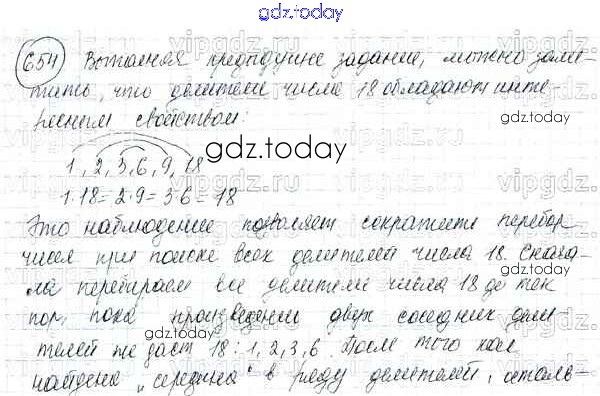 gdz.today
654 Выполняя предыдущие задание, можно заме-
тить, что делители числа 18 обладают инте-
ресным свойством:
gdz.today
1, 2, 3, 6, 9, 18
1·18=2·9=3·6=18
Это наблюдение позволяет сократить перебор
чисел при поиске всех делителей числа 18. Снача-
ла перебираем все делители числа 18 до тех
пор, пока произведение двух соседних дели-
gdz.today
телей не даст 18: 1, 2, 3, 6. После того как
найдена „середина" в ряду делителей, осталь-
gdz.today